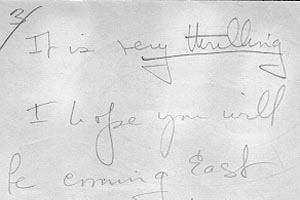 3/
It is very thrilling
I hope you will
be coming East